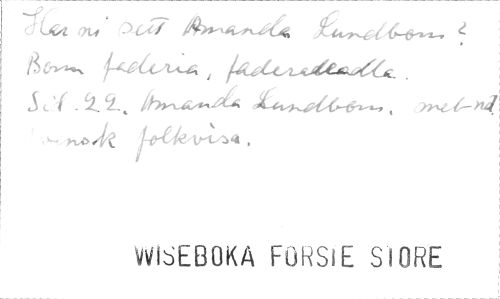 Har ni sett Amanda Lundbom?
Bom faderia, faderadeadla.
Sid. 22. Amanda Lundbom. mel-nd.
Svensk folkvisa.
WISEBOKA FORSTE STORE